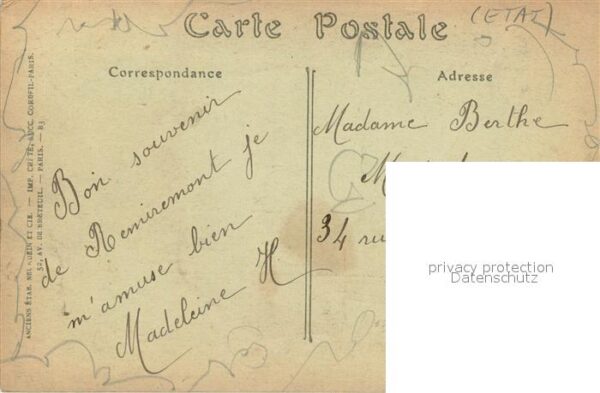 Carte Postale
(ETAT)
Correspondance
Adresse
Bon souvenir
de Remiremont je
m'amuse bien
Madeleine H
Madame Berthe
34 rue
privacy protection
Datenschutz
ANCIENS ÉTAB. NEURDEIN ET CIE. — IMP. CRÉTÉ, SUCC. CORBEIL-PARIS.
52, AV. DE BRETEUIL. — PARIS.